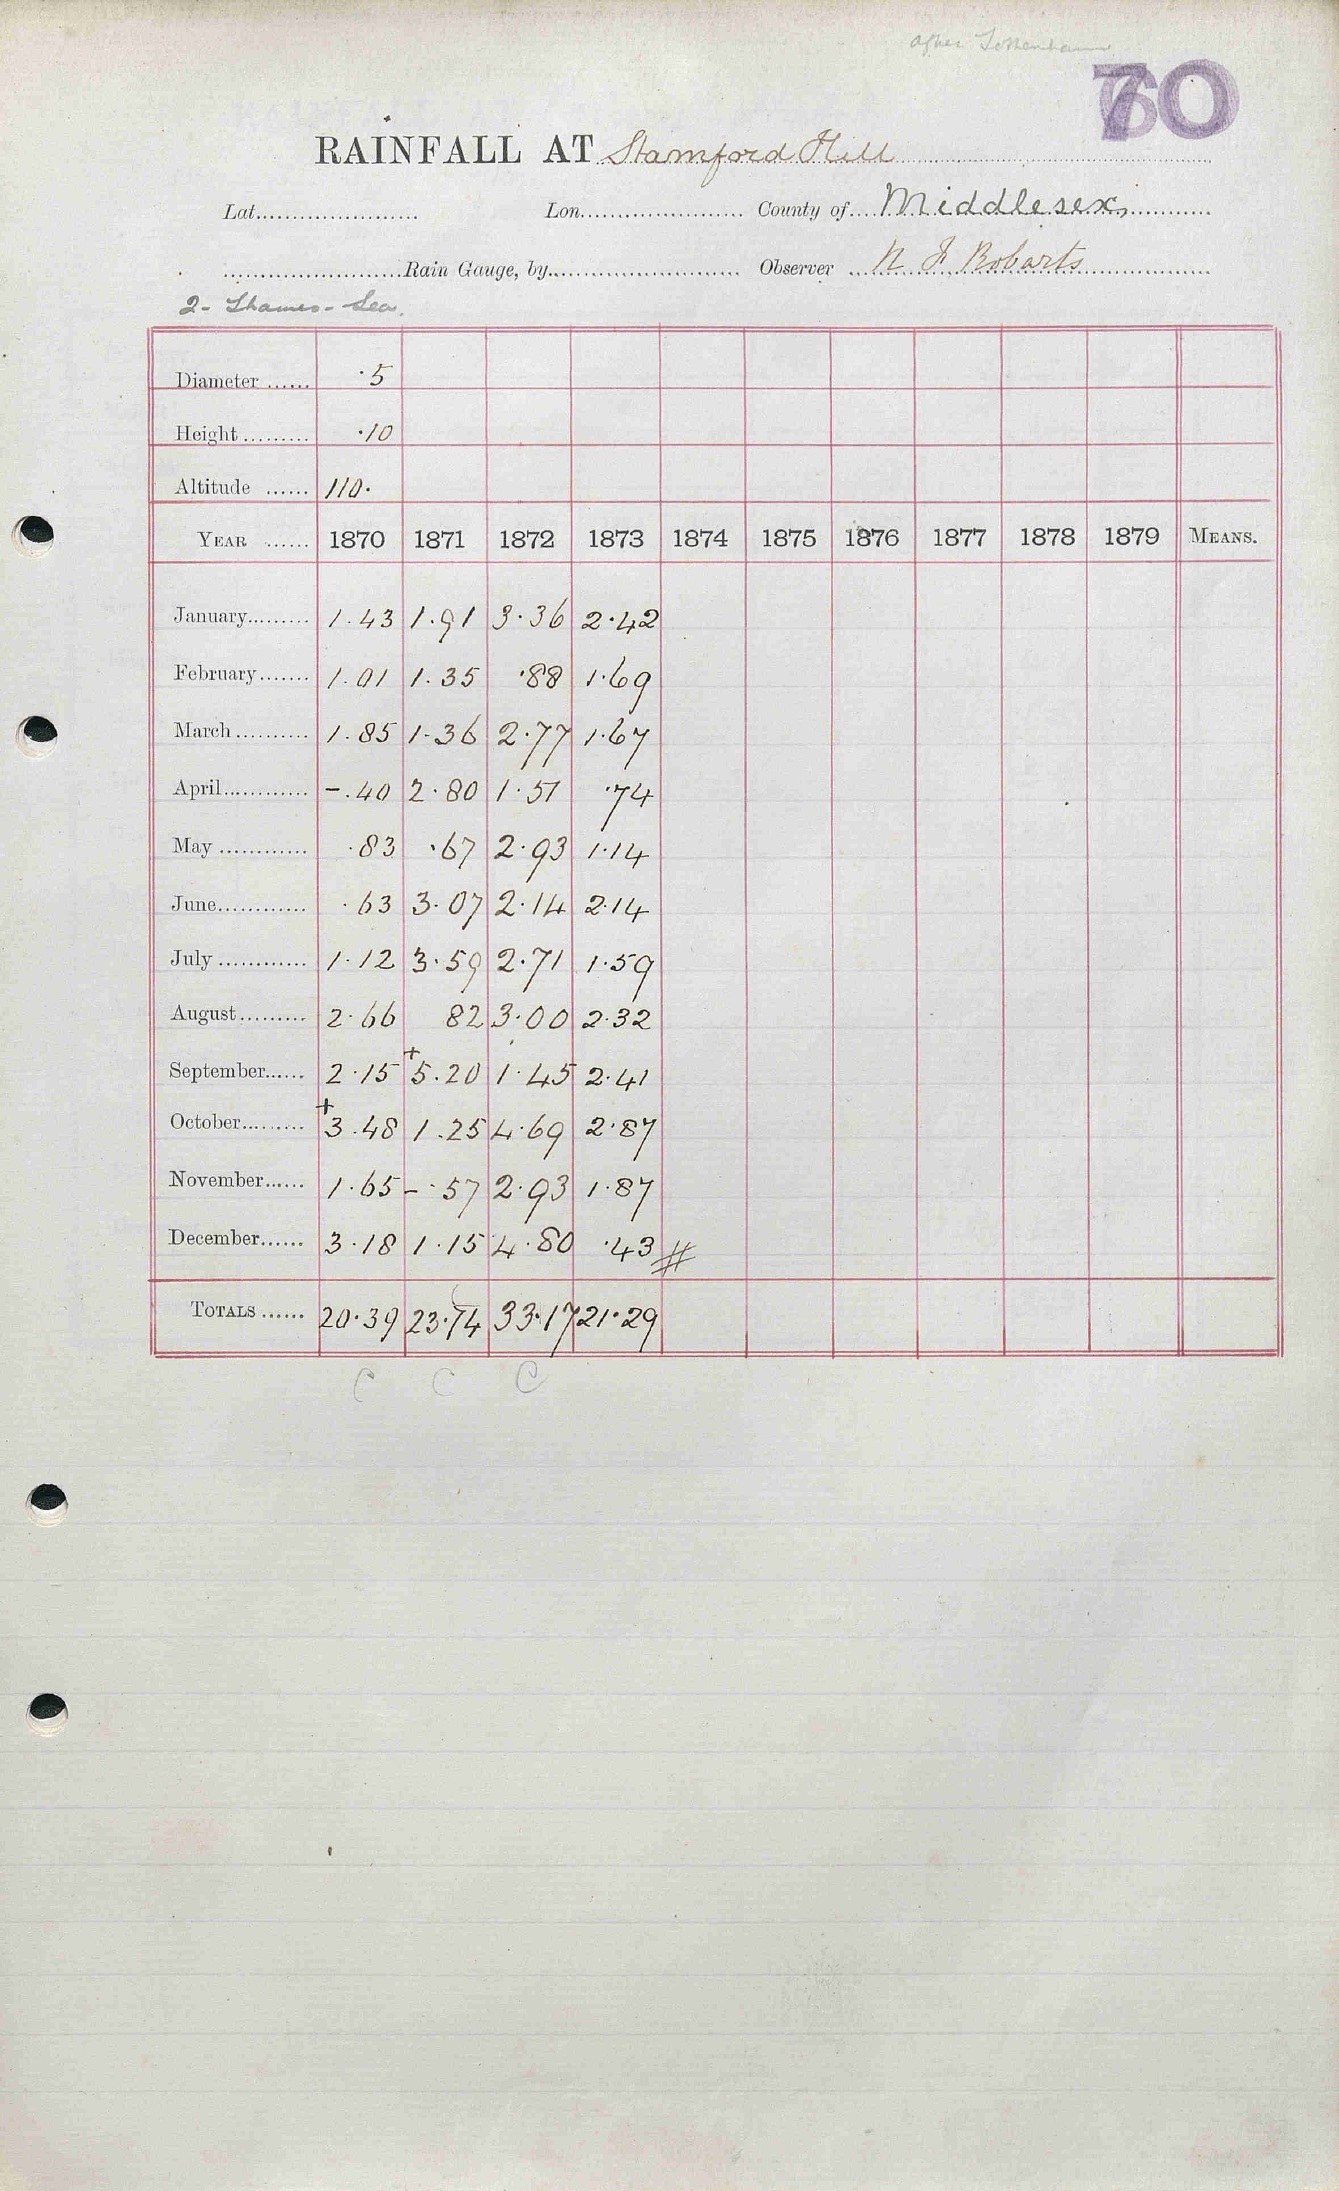 after Tottenham
70
RAINFALL AT Stamford Hill
Lat...................... Lon...................... County of.... Middlesex.
........................Rain Gauge, by......................... Observer .... N F Robarts
2- Thames - Sea.
Diameter ...... ·5
Height ......... ·10
Altitude ...... 110·
YEAR ...... 1870 1871 1872 1873 1874 1875 1876 1877 1878 1879 MEANS.
January......... 1.43 1.91 3.36 2.42
February....... 1.01 1.35 ·88 1.69
March .......... 1.85 1.36 2.77 1.67
April............ -.40 2.80 1.51 ·74
May ............ ·83 ·67 2.93 1.14
June............ ·63 3.07 2.14 2.14
July ............ 1.12 3.59 2.71 1.59
August......... 2.66 82 3.00 2.32
September...... 2.15 +5.20 1.45 2.41
October......... +3.48 1.25 4.69 2.87
November...... 1.65 -·57 2.93 1.87
December...... 3.18 1.15 4.80 ·43 #
TOTALS ...... 20.39 23.74 33.17 21.29
C C C